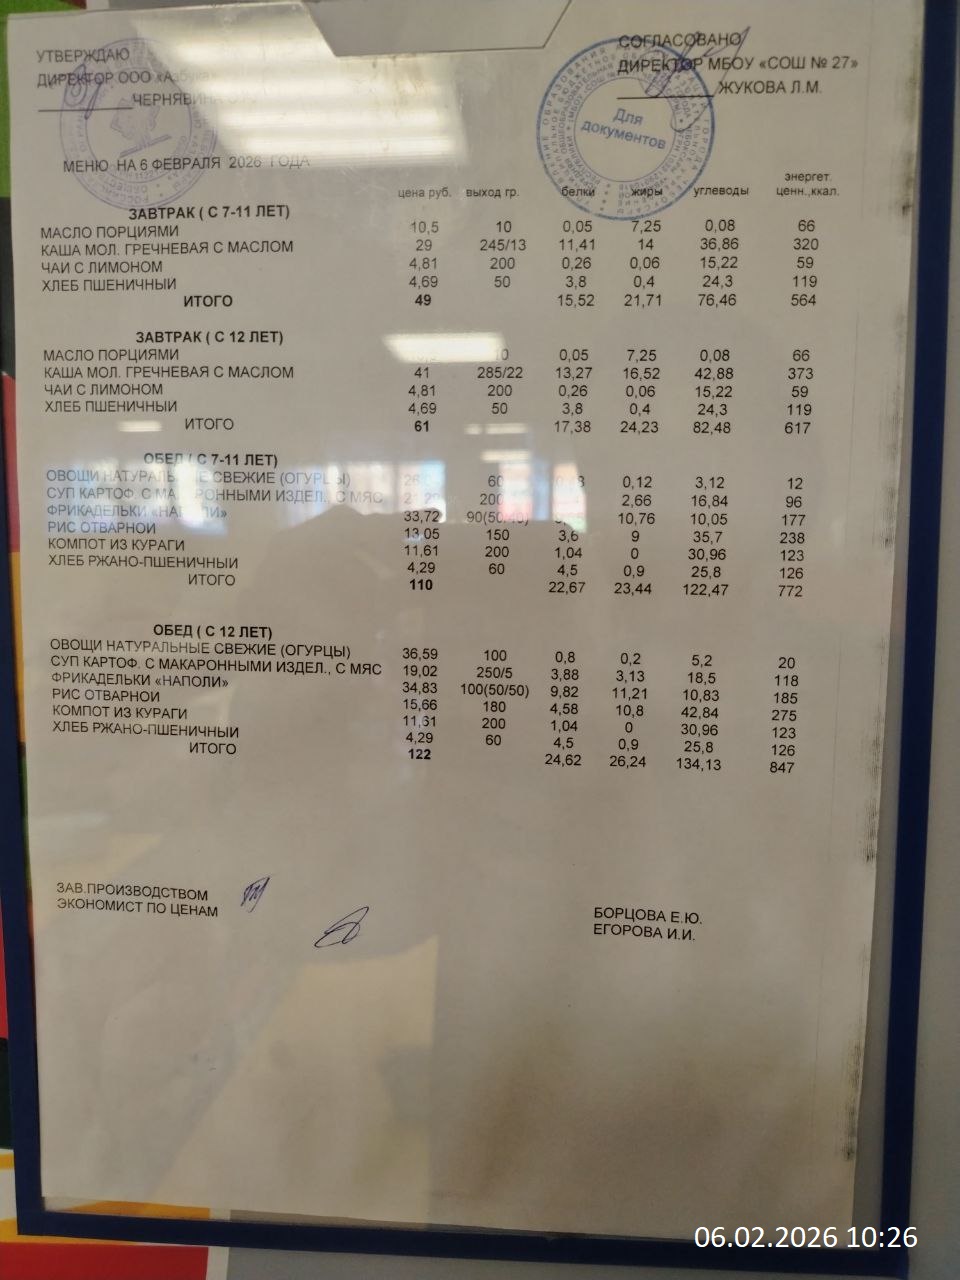 УТВЕРЖДАЮ
ДИРЕКТОР ООО «Азбука
ЧЕРНЯВИНА
СОГЛАСОВАНО
ДИРЕКТОР МБОУ «СОШ № 27»
ЖУКОВА Л.М.
Для
документов
МЕНЮ НА 6 ФЕВРАЛЯ 2026 ГОДА
цена руб. выход гр. белки жиры углеводы энергет. ценн.,ккал.
ЗАВТРАК ( С 7-11 ЛЕТ)
МАСЛО ПОРЦИЯМИ 10,5 10 0,05 7,25 0,08 66
КАША МОЛ. ГРЕЧНЕВАЯ С МАСЛОМ 29 245/13 11,41 14 36,86 320
ЧАИ С ЛИМОНОМ 4,81 200 0,26 0,06 15,22 59
ХЛЕБ ПШЕНИЧНЫЙ 4,69 50 3,8 0,4 24,3 119
ИТОГО 49 15,52 21,71 76,46 564
ЗАВТРАК ( С 12 ЛЕТ)
МАСЛО ПОРЦИЯМИ 10 0,05 7,25 0,08 66
КАША МОЛ. ГРЕЧНЕВАЯ С МАСЛОМ 41 285/22 13,27 16,52 42,88 373
ЧАИ С ЛИМОНОМ 4,81 200 0,26 0,06 15,22 59
ХЛЕБ ПШЕНИЧНЫЙ 4,69 50 3,8 0,4 24,3 119
ИТОГО 61 17,38 24,23 82,48 617
ОБЕД ( С 7-11 ЛЕТ)
ОВОЩИ НАТУРАЛЬНЫЕ СВЕЖИЕ (ОГУРЦЫ) 60 0,12 3,12 12
СУП КАРТОФ. С МАКАРОННЫМИ ИЗДЕЛ., С МЯС 200 2,66 16,84 96
ФРИКАДЕЛЬКИ «НАПОЛИ» 33,72 90(50/40) 10,76 10,05 177
РИС ОТВАРНОИ 13,05 150 3,6 9 35,7 238
КОМПОТ ИЗ КУРАГИ 11,61 200 1,04 0 30,96 123
ХЛЕБ РЖАНО-ПШЕНИЧНЫЙ 4,29 60 4,5 0,9 25,8 126
ИТОГО 110 22,67 23,44 122,47 772
ОБЕД ( С 12 ЛЕТ)
ОВОЩИ НАТУРАЛЬНЫЕ СВЕЖИЕ (ОГУРЦЫ) 36,59 100 0,8 0,2 5,2 20
СУП КАРТОФ. С МАКАРОННЫМИ ИЗДЕЛ., С МЯС 19,02 250/5 3,88 3,13 18,5 118
ФРИКАДЕЛЬКИ «НАПОЛИ» 34,83 100(50/50) 9,82 11,21 10,83 185
РИС ОТВАРНОИ 15,66 180 4,58 10,8 42,84 275
КОМПОТ ИЗ КУРАГИ 11,61 200 1,04 0 30,96 123
ХЛЕБ РЖАНО-ПШЕНИЧНЫЙ 4,29 60 4,5 0,9 25,8 126
ИТОГО 122 24,62 26,24 134,13 847
ЗАВ.ПРОИЗВОДСТВОМ БОРЦОВА Е.Ю.
ЭКОНОМИСТ ПО ЦЕНАМ ЕГОРОВА И.И.
06.02.2026 10:26